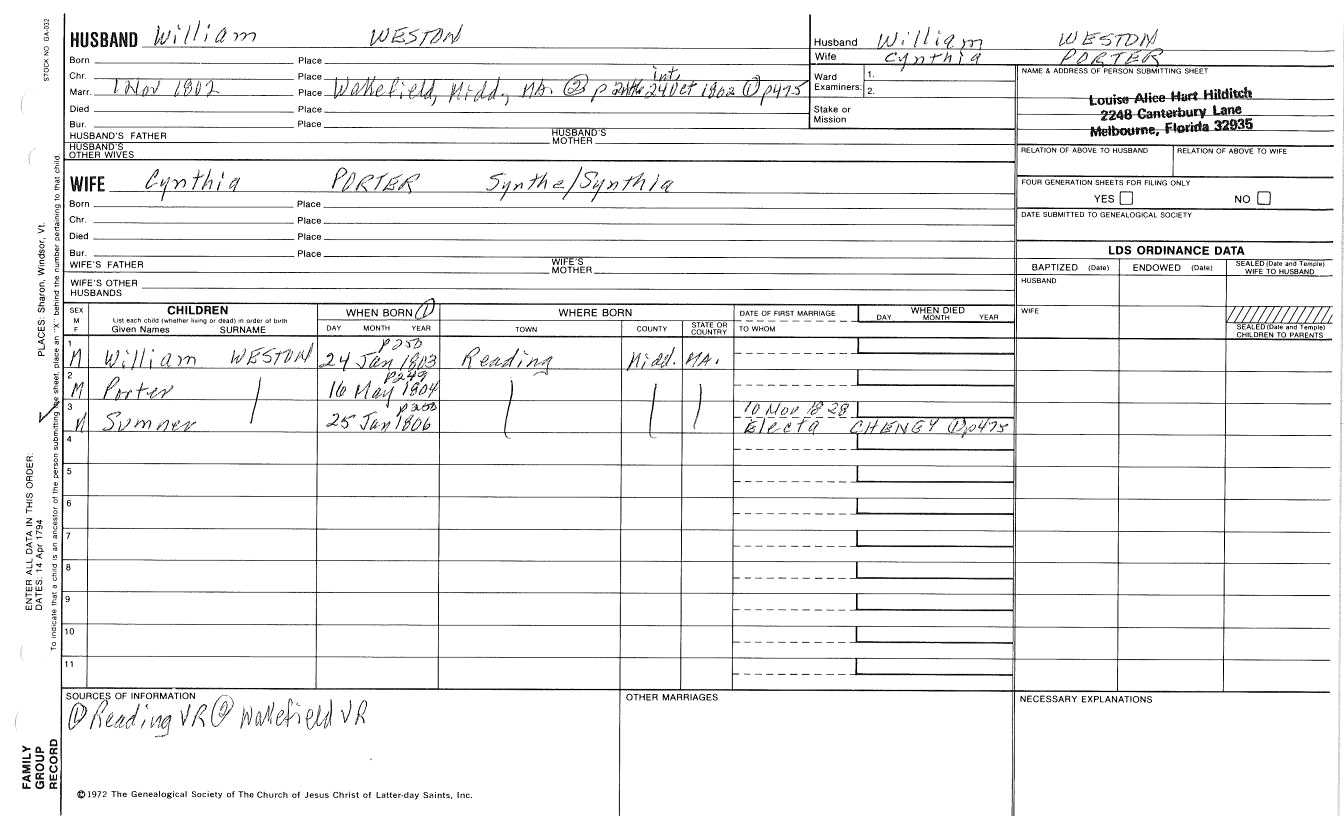 STOCK NO GA-032
HUSBAND William WESTON
Born Place
Chr. Place
Marr. 1 Nov 1802 Place Wakefield, Midd., MA. ② int. 24 Oct 1802 ① p475
Died Place
Bur. Place
HUSBAND'S FATHER HUSBAND'S MOTHER
HUSBAND'S OTHER WIVES
Husband William WESTON
Wife Cynthia PORTER
Ward Examiners: 1.
2.
Stake or Mission
NAME & ADDRESS OF PERSON SUBMITTING SHEET
Louise Alice Hart Hilditch
2248 Canterbury Lane
Melbourne, Florida 32935
RELATION OF ABOVE TO HUSBAND RELATION OF ABOVE TO WIFE
FOUR GENERATION SHEETS FOR FILING ONLY
YES NO
DATE SUBMITTED TO GENEALOGICAL SOCIETY
WIFE Cynthia PORTER Synthe/Synthia
Born Place
Chr. Place
Died Place
Bur. Place
WIFE'S FATHER WIFE'S MOTHER
WIFE'S OTHER HUSBANDS
LDS ORDINANCE DATA
BAPTIZED (Date) ENDOWED (Date) SEALED (Date and Temple) WIFE TO HUSBAND
HUSBAND
WIFE
SEALED (Date and Temple) CHILDREN TO PARENTS
SEX M F
CHILDREN
List each child (whether living or dead) in order of birth
Given Names SURNAME
WHEN BORN ①
DAY MONTH YEAR
WHERE BORN
TOWN COUNTY STATE OR COUNTRY
DATE OF FIRST MARRIAGE
TO WHOM
WHEN DIED
DAY MONTH YEAR
p250
1 M William WESTON 24 Jan 1803 Reading Midd. MA.
p249
2 M Porter 16 May 1804
p250 10 Nov 1828
3 M Sumner 25 Jan 1806 Electa CHENEY ① p475
4
5
6
7
8
9
10
11
SOURCES OF INFORMATION
① Reading VR ② Wakefield VR
OTHER MARRIAGES
NECESSARY EXPLANATIONS
©1972 The Genealogical Society of The Church of Jesus Christ of Latter-day Saints, Inc.
FAMILY GROUP RECORD
ENTER ALL DATA IN THIS ORDER:
DATES: 14 Apr 1794 PLACES: Sharon, Windsor, Vt.
To indicate that a child is an ancestor of the person submitting the sheet, place an "X" behind the number pertaining to that child.